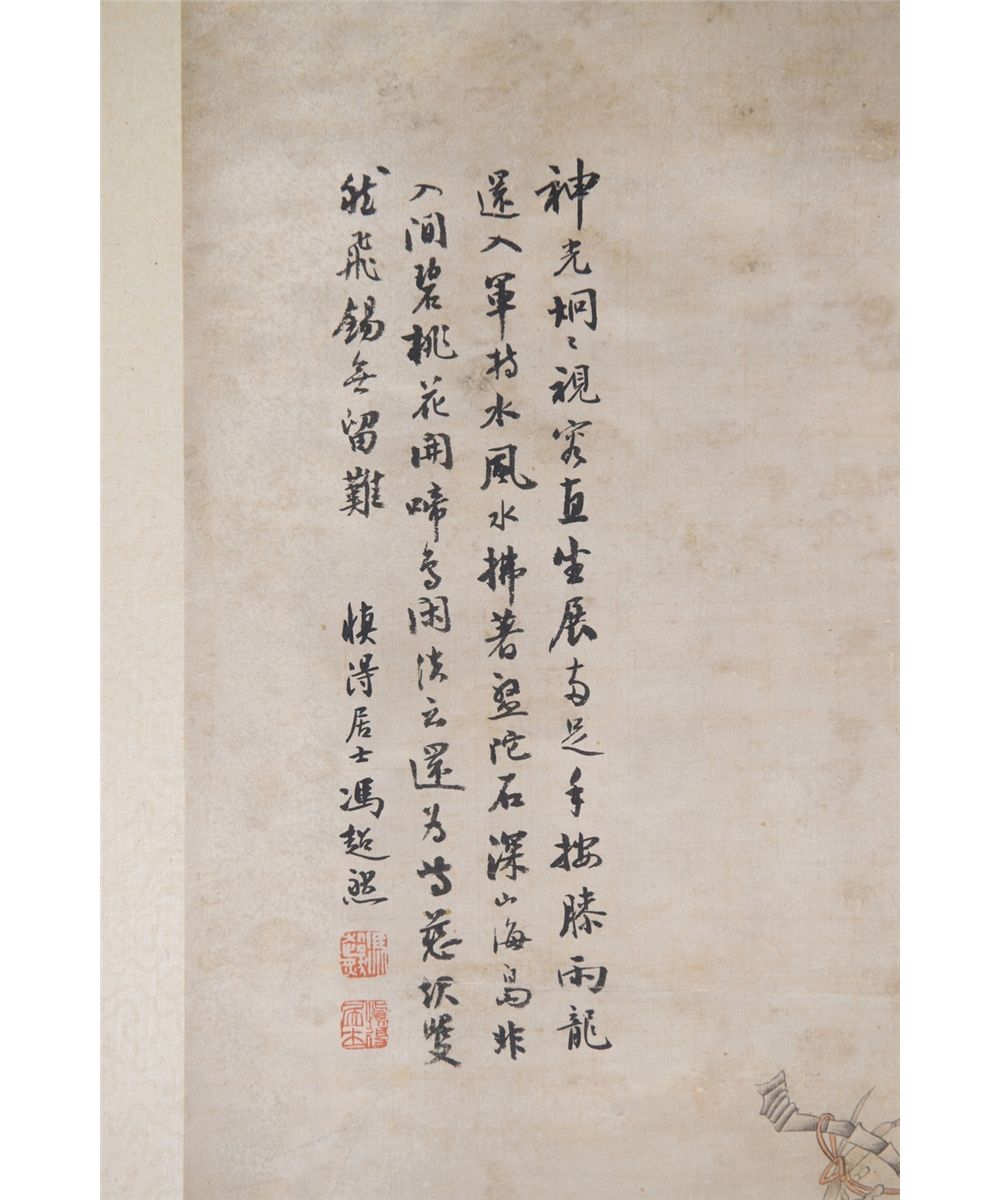 神光炯〻視容直坐展兩足手按膝雨龍
還入軍持水風水拂著盤陀石深山海島非
人間碧桃花開啼鳥閑法云還為等慈
然飛錫無留難
慎得居士馮超然
慎得居士